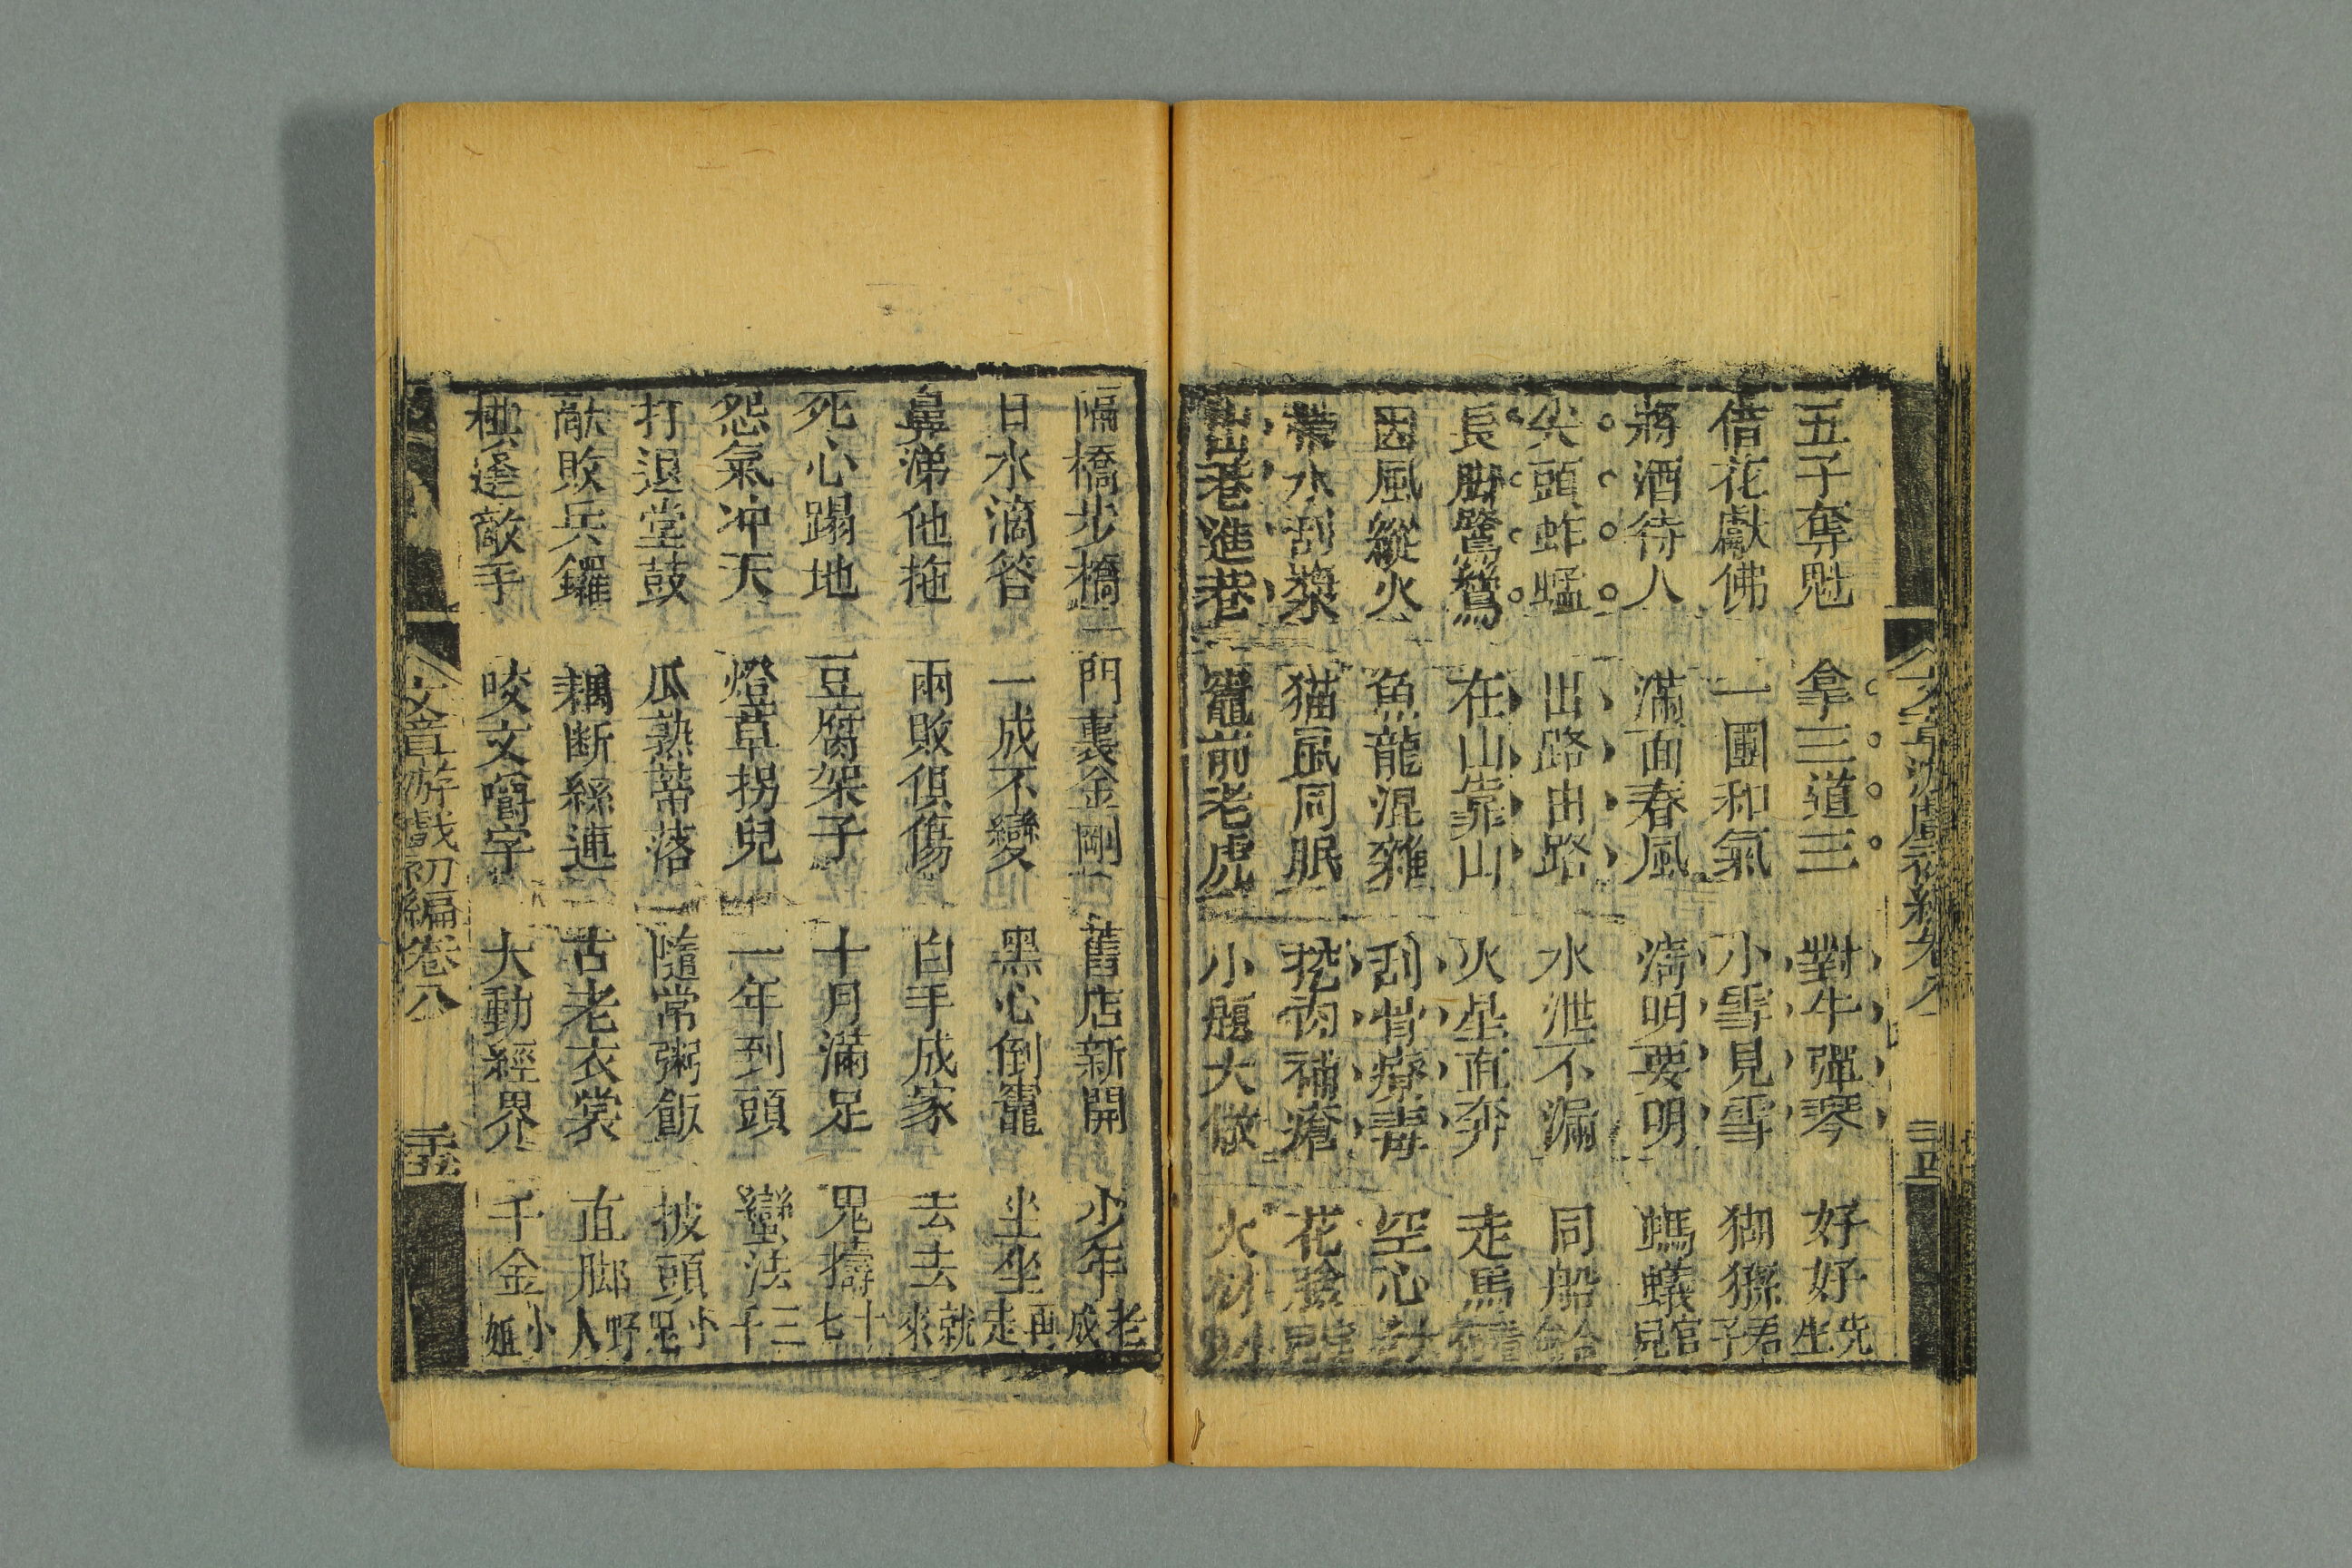 五子奪魁 拿三道三 對牛彈琴 好好先生
借花獻佛 一團和氣 小雪見雪 猢猻君子
將酒待人 滿面春風 清明要明 螞蟻官兒
尖頭蚱蜢 出路由路 水泄不漏 同船合命
長脚鷺鷥 在山靠山 火星直奔 走馬看花
因風縱火 魚龍混雜 刮骨療毒 空心
帶水刮漿 猫鼠同眠 挖肉補瘡 花臉
出巷進巷 竈前老虎 小題大做 火
隔橋步橋 門裏金剛 舊店新開 少年老成
日水滴答 一成不變 黑心倒竈 坐坐再走
鼻涕他拖 兩敗俱傷 白手成家 去去就來
死心蹋地 豆腐架子 十月滿足 鬼擣十七
怨氣冲天 燈草拐兒 一年到頭 蠻法三千
打退堂鼓 瓜熟蒂落 隨常粥飯 披頭小鬼
敲敗兵鑼 藕断絲連 古老衣裳 直脚野人
棋逢敵手 咬文嚼字 大動經界 千金小姐
文章游戲初編卷八 三十五